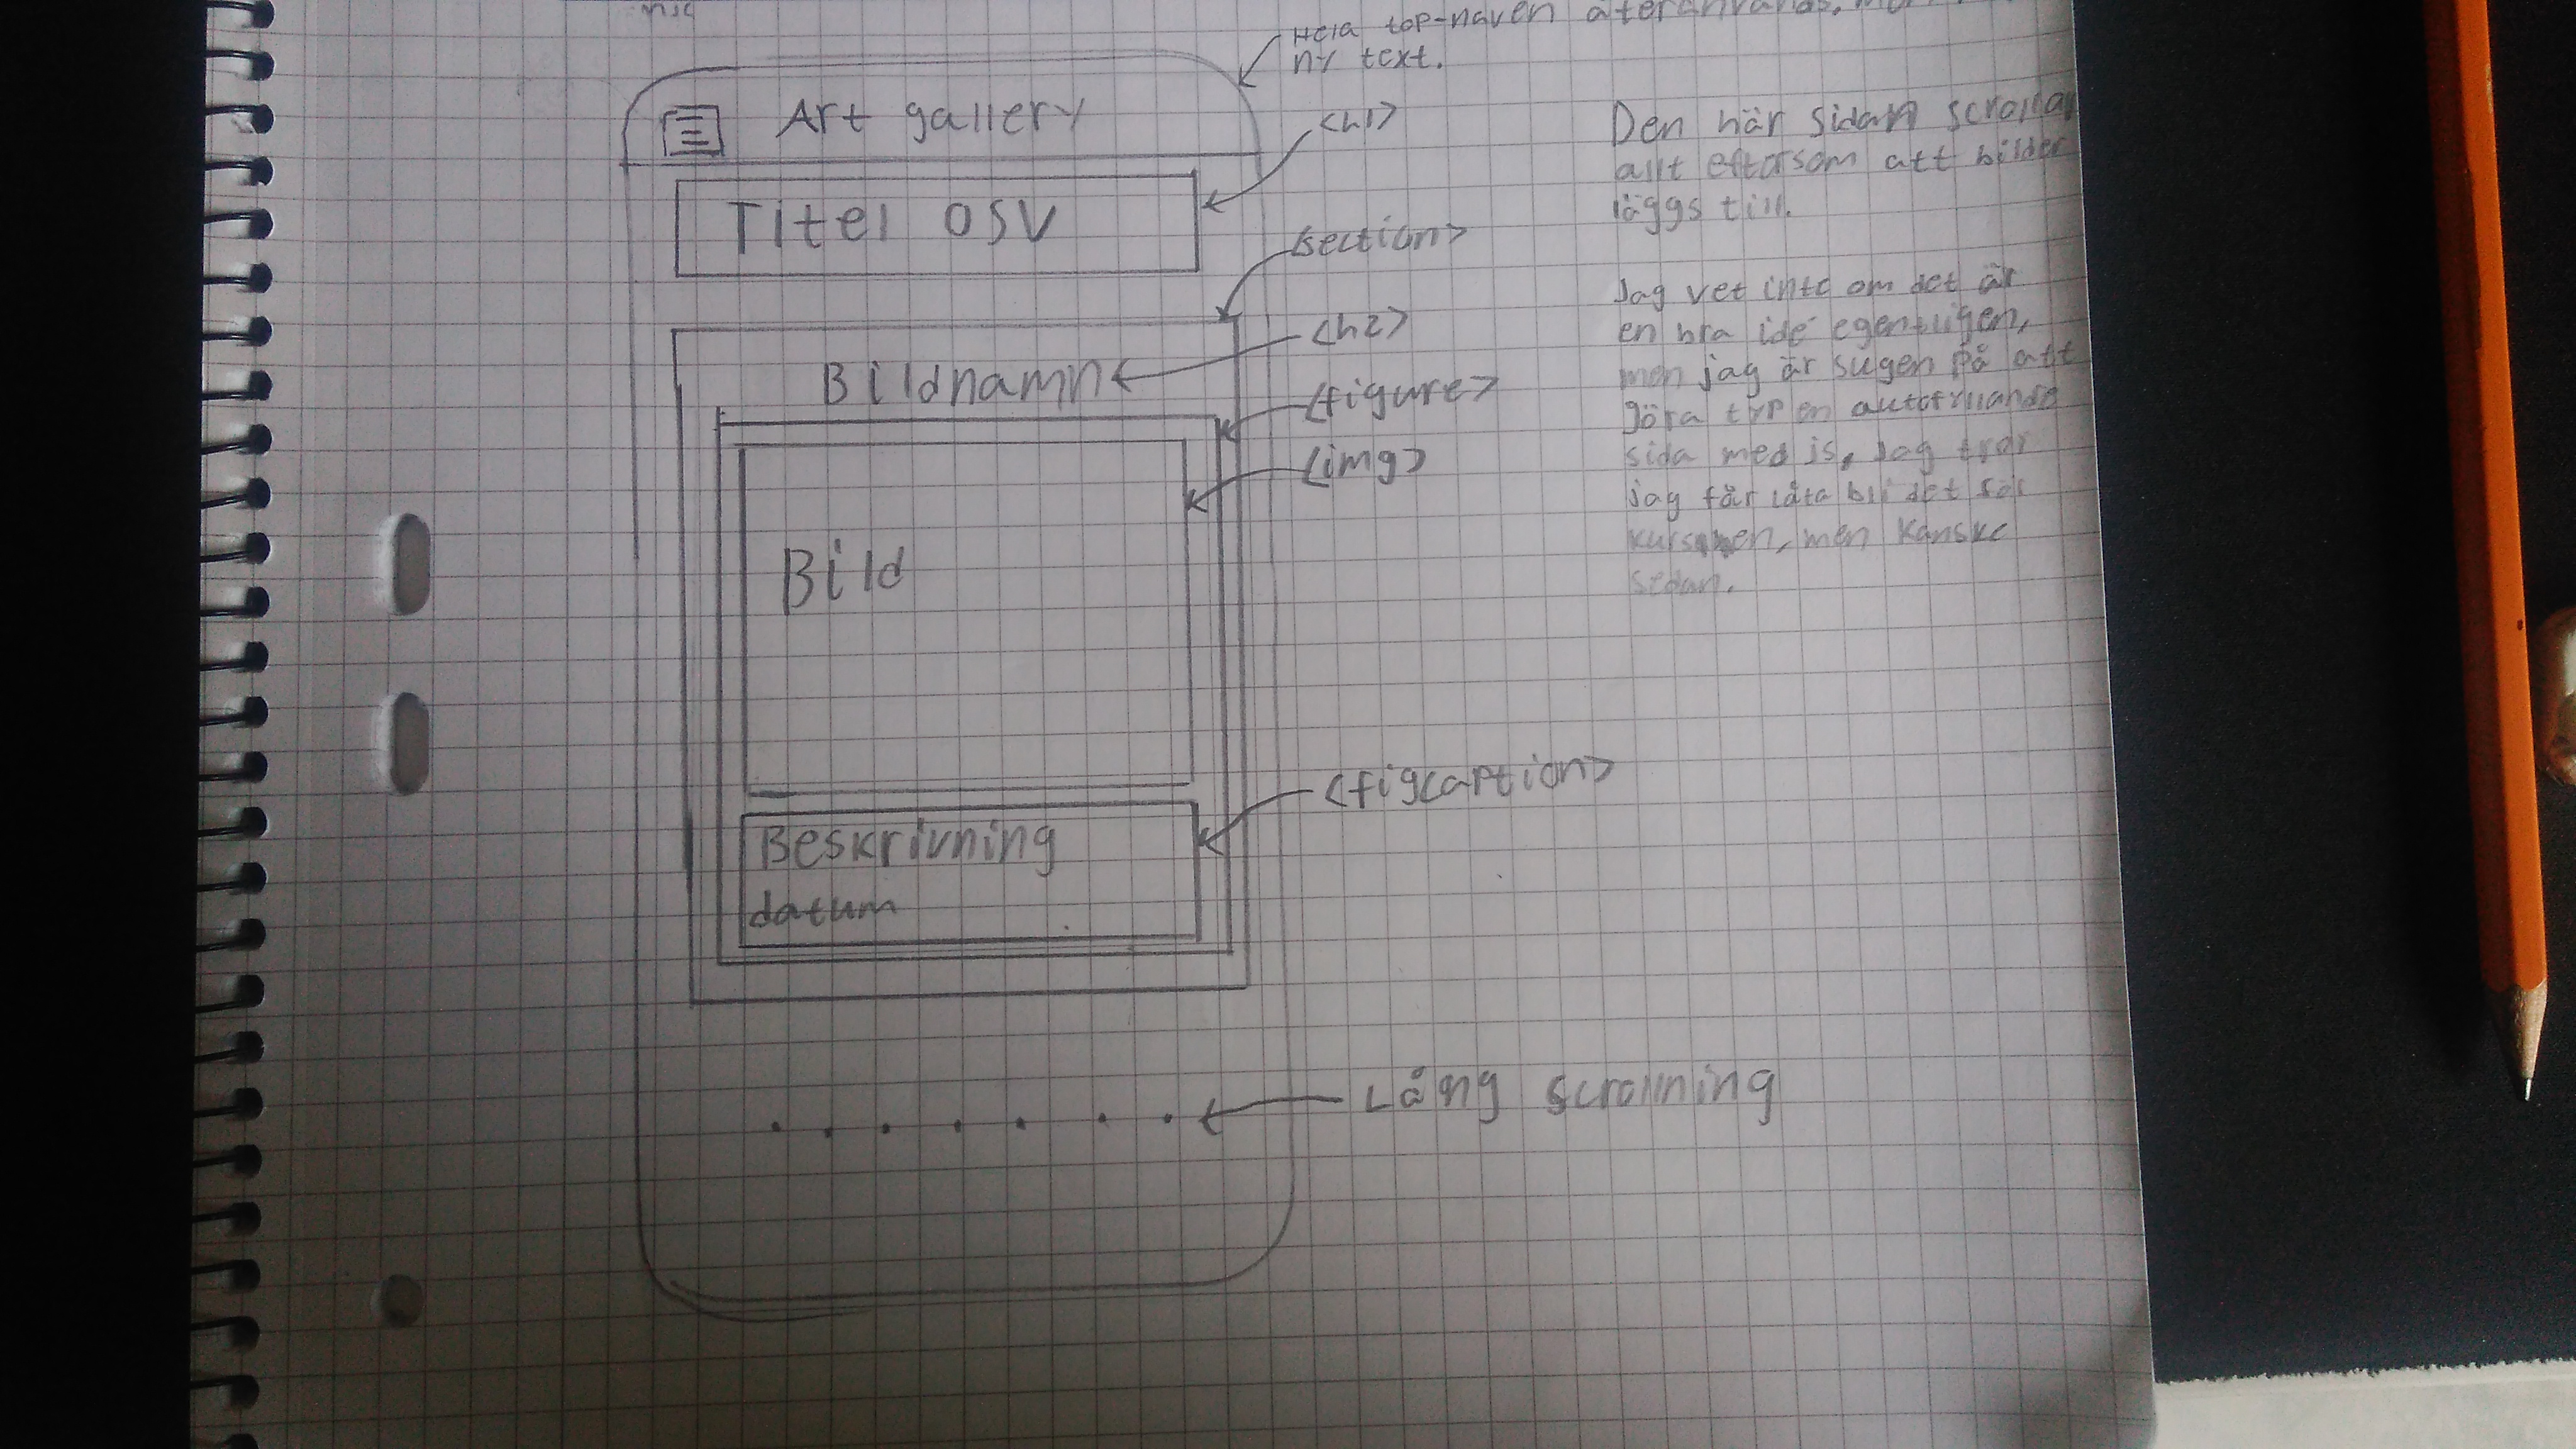 Hela top-naven återanvänds, men
ny text.
Art gallery
<h1>
Titel osv
<section>
<h2>
Bildnamn
<figure>
<img>
Bild
<figcaption>
Beskrivning
datum
Lång scrollning
Den här sidan scrollar
allt eftersom att bilder
läggs till.
Jag vet inte om det är
en bra idé egentligen,
men jag är sugen på att
göra typ en autofyllande
sida med js. Jag tror
jag får låta bli det för
kursen, men kanske
sedan.